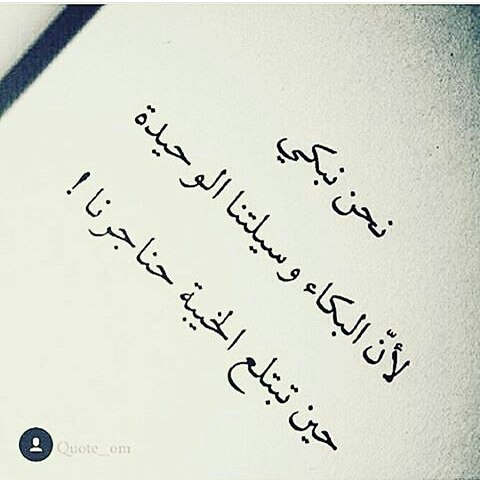 نحن نبكي
لأنّ البكاء وسيلتنا الوحيدة
حين تبتلع الخيبة حناجرنا !
Quote_om